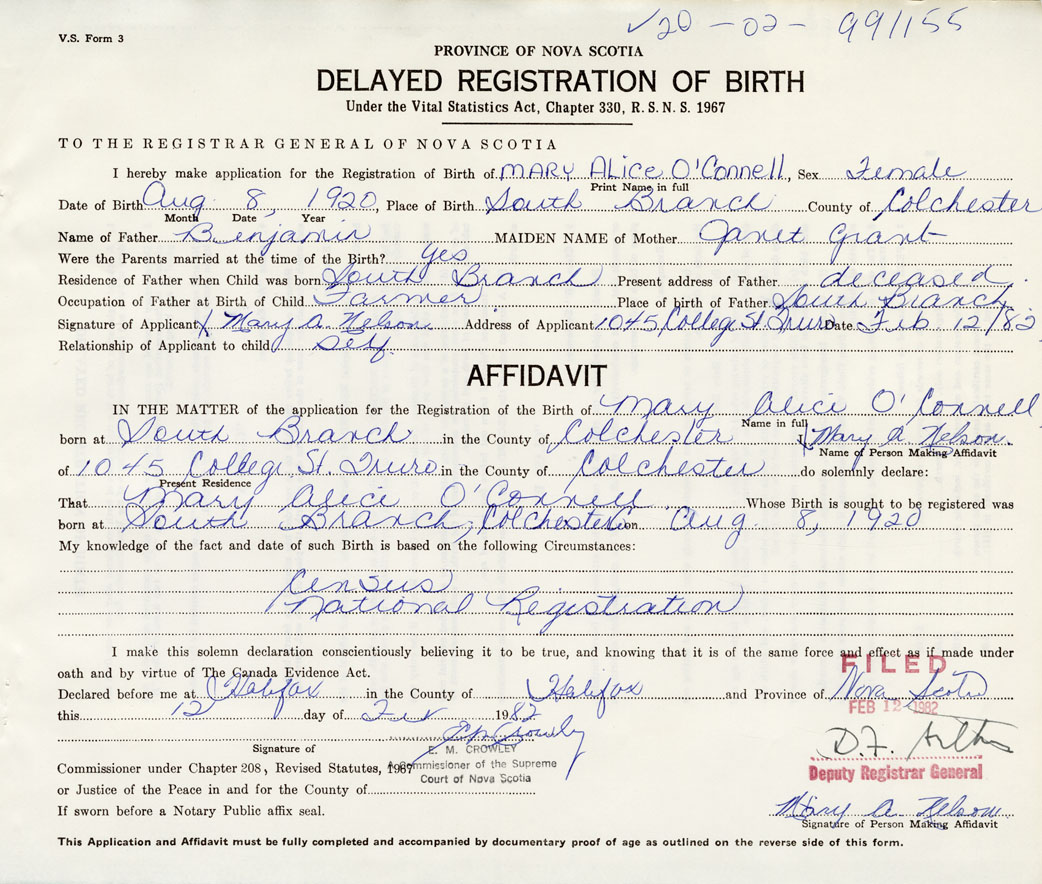 ✓20-02- 99/155
V.S. Form 3
PROVINCE OF NOVA SCOTIA
DELAYED REGISTRATION OF BIRTH
Under the Vital Statistics Act, Chapter 330, R.S.N.S. 1967
TO THE REGISTRAR GENERAL OF NOVA SCOTIA
I hereby make application for the Registration of Birth of MARY ALice O'Connell, Sex Female
Print Name in full
Date of Birth Aug 8, 1920, Place of Birth South Branch County of Colchester
Month Date Year
Name of Father Benjamin MAIDEN NAME of Mother Janet Grant
Were the Parents married at the time of the Birth? yes
Residence of Father when Child was born South Branch Present address of Father deceased
Occupation of Father at Birth of Child Farmer Place of birth of Father South Branch
Signature of Applicant X Mary A. Nelson Address of Applicant 1045 College St. Truro Date Feb 12/82
Relationship of Applicant to child Self.
AFFIDAVIT
IN THE MATTER of the application for the Registration of the Birth of Mary Alice O'Connell
Name in full
born at South Branch in the County of Colchester I, Mary A Nelson.
Name of Person Making Affidavit
of 1045 College St. Truro in the County of Colchester do solemnly declare:
Present Residence
That Mary Alice O'Connell Whose Birth is sought to be registered was
born at South Branch, Colchester on Aug 8, 1920
My knowledge of the fact and date of such Birth is based on the following Circumstances:
Census
National Registration
I make this solemn declaration conscientiously believing it to be true, and knowing that it is of the same force and effect as if made under
oath and by virtue of The Canada Evidence Act.
FILED
Declared before me at Halifax in the County of Halifax and Province of Nova Scotia
FEB 12 1982
this 12 day of Feb 1982
EM Crowley
Signature of E. M. CROWLEY
Commissioner under Chapter 208, Revised Statutes, 1967 A Commissioner of the Supreme
Court of Nova Scotia
D.F.
Deputy Registrar General
or Justice of the Peace in and for the County of
If sworn before a Notary Public affix seal.
Mary A. Nelson
Signature of Person Making Affidavit
This Application and Affidavit must be fully completed and accompanied by documentary proof of age as outlined on the reverse side of this form.